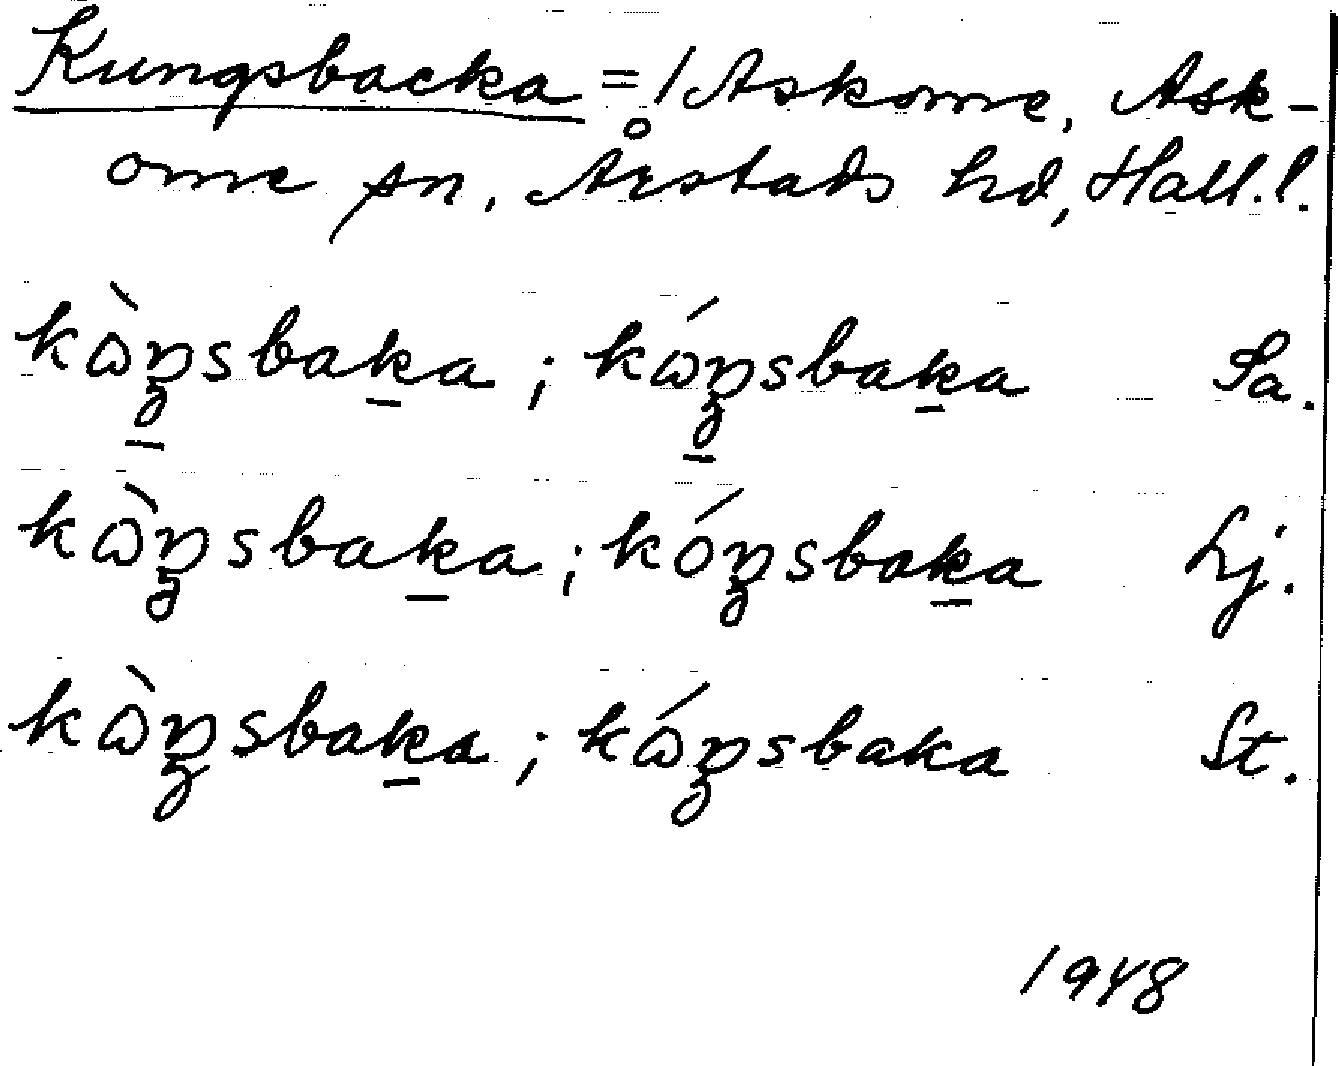 Kungsbacka = 1 Askome, Ask-
ome sn, Årstads hd, Hall. l.
kὼŋsbaka ; kώŋsbaka Sa.
kὼŋsbaka ; kóŋsbaka Lj.
kὼŋsbaka ; kώŋsbaka St.
1948